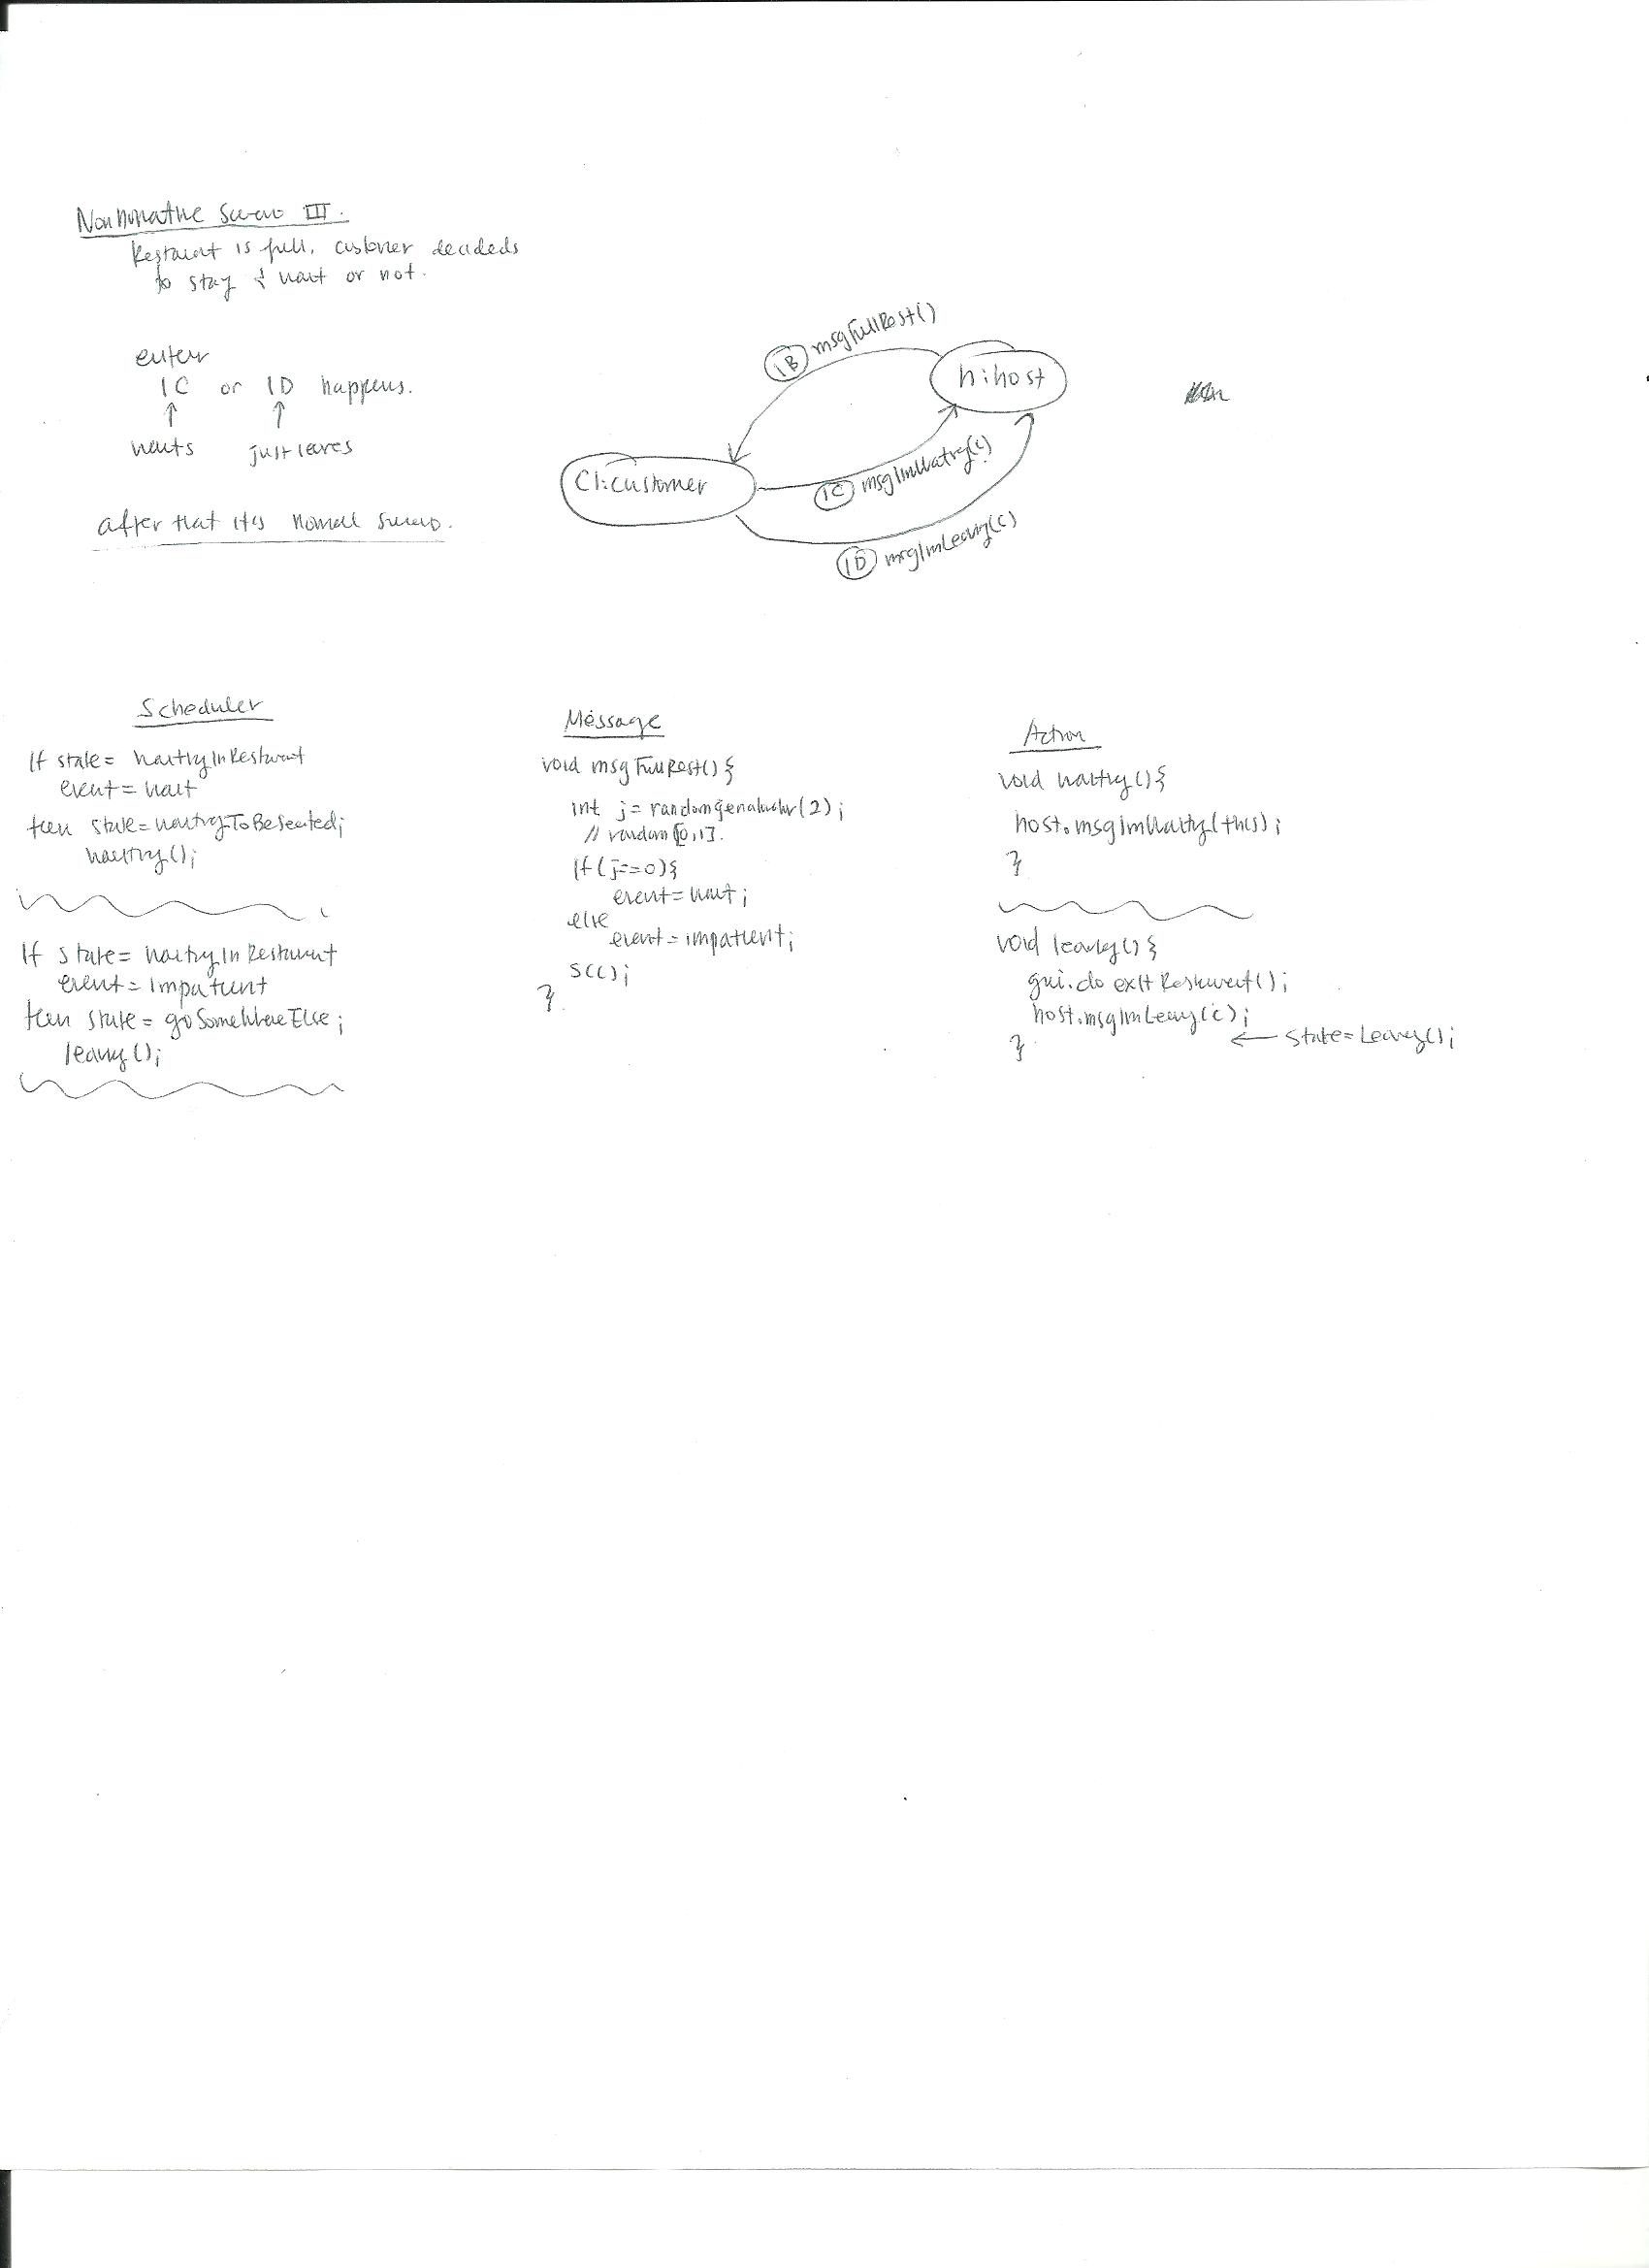 NonNormative Scenario III.
Restaurant is full, customer decideds
to stay & wait or not.
enter
1C or 1D happens.
waits just leaves
after that it's normal scenario.
1B msgFullRest()
h:host
C1:customer
1C msgImWaiting(c)
1D msgImLeaving(c)
Scheduler
If state = waitingInRestaurant
event = wait
then state = waitingToBeSeated;
waiting();
If state = waitingInRestaurant
event = impatient
then state = goSomewhereElse;
leaving();
Message
void msgFullRest() {
int j = randomgenerator(2);
// random [0,1].
If (j==0) {
event = wait;
else
event = impatient;
SCC);
}
Action
void waiting() {
host.msgImWaiting(this);
}
void leaving() {
gui.do exit Restaurant();
host.msgImLeaving(c);
} ← state = Leaving();